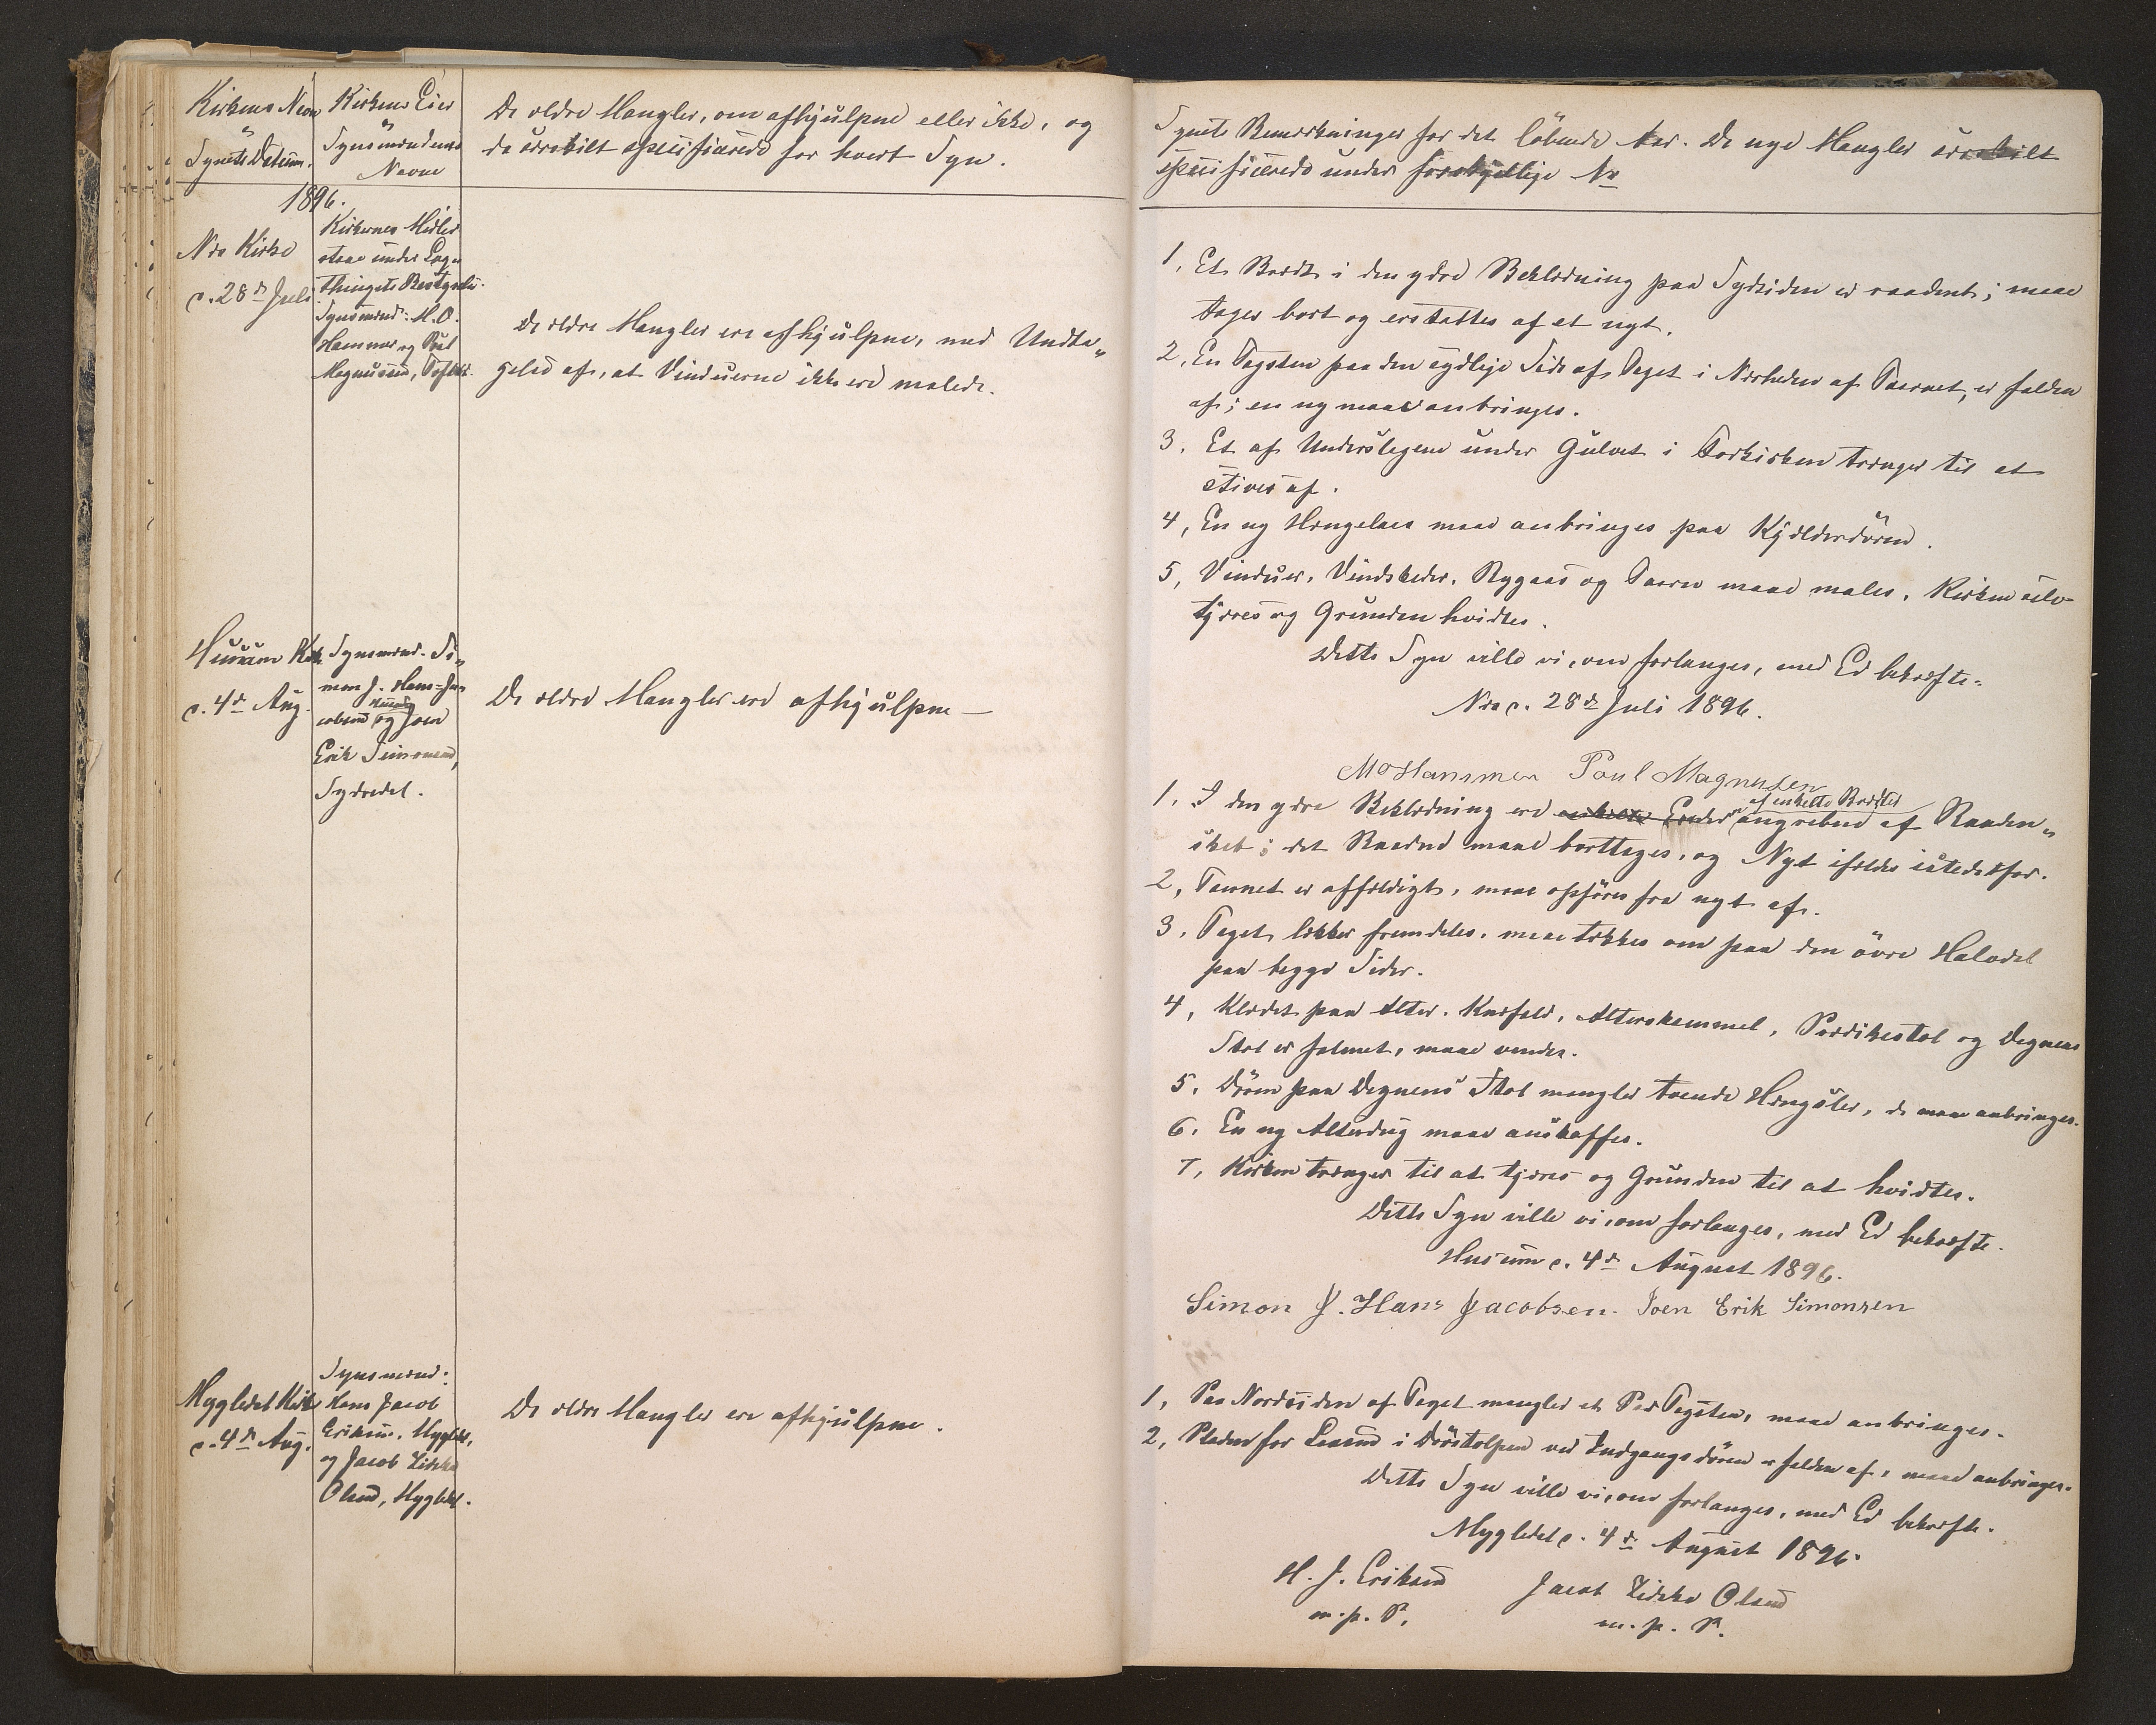 Kirkens Navn
Synets Datum.
Kirkens Eier
Synsmændenes
Navne
De ældre Mangler, om afhjulpne eller ikke, og
de særskilt specificerede for hvert Syn.
1896.
Næs Kirke
d. 28de Juli
Kirkernes Midler
staae under Lag-
thingets Bestyrelse.
Synsmænd: M. O.
Hammer og Poul
Magnussen,
De ældre Mangler ere afhjulpne, med Undta„
gelse af, at Vinduerne ikke ere malede.
Husum Kirke
d. 4de Aug.
Synsmænd. Si„
mon J. Hans-Ja„
cobsen Husum og Joen
Erik Simonsen,
Sydredal.
De ældre Mangler ere afhjulpne —
Mygledal Kirke
d. 4de Aug.
Synsmænd:
Hans Jacob
Eriksen, Mygledal,
og Jacob Zidska
Olsen, Mygledal.
De ældre Mangler ere afhjulpne.
Synets Bemærkninger for det löbende Aar. De nye Mangler særskilt
specificerede under forskjellige No
1. Et Brædt i den ydre Beklædning paa Sydsiden er raadent; maae
tages bort og erstattes af et nyt.
2. En Tagsten paa den sydlige Side af Taget i Nærheden af Taarnet, er falden
af; en ny maae anbringes.
3. Et af Underslagene under Gulvet i Forkirken trænger til at
stives af.
4, En ny Hængelaas maae anbringes paa Kjælderdören.
5, Vinduer, Vindskeder, Rygaas og Taarn maae males. Kirken selv
tjæres og Grunden hvidtes.
Dette Syn ville vi, om forlanges, med Ed bekræfte.
Næs d. 28de Juli 1896.
M O Hammer Poul Magnussen
1. I den ydre Beklædning ere enkelte Ender af enkelte Brædder angrebne af Raaden„
skab; det Raadne maae borttages, og Nyt ifældes istedetfor.
2, Taarnet er affældigt, maae opföres fra nyt af.
3. Taget lækker fremdeles, maae tækkes om paa den övre Halvdel
paa begge Sider.
4, Klædet paa Alter. Knæfald, Alterskammel, Prædikestol og Degnens
Stol er falmet, maae vendes.
5. Dören paa Degnens Stol mangler tvende Hængsler, de maae anbringes.
6. En ny Alterdug maae anskaffes.
7, Kirken trænger til at tjæres og Grunden til at hvidtes.
Dette Syn ville vi, om forlanges, med Ed bekræfte.
Husum d. 4de August 1896.
Simon J. Hans Jacobsen. Joen Erik Simonsen
1, Paa Nordsiden af Taget mangler et Par Tagsten, maae anbringes.
2, Pladen for Laasen i Dörstolpen ved Indgangsdören er falden af, maae anbringes.
Dette Syn ville vi, om forlanges, med Ed bekræfte.
Mygledal d. 4de August 1896.
H. J. Eriksen Jacob Zidska Olsen
m. p. P. m. p. P.